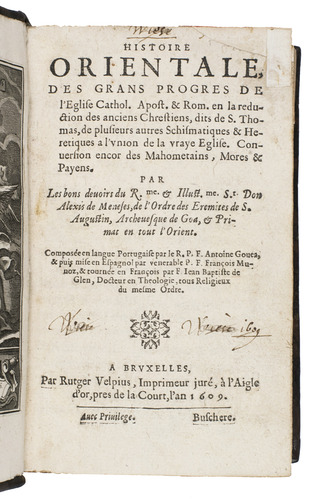 HISTOIRE
ORIENTALE,
DES GRANS PROGRES DE
l'Eglise Cathol. Apost. & Rom. en la redu-
ction des anciens Chrestiens, dits de S. Tho-
mas, de plusieurs autres Schismatiques & He-
retiques a l'vnion de la vraye Eglise. Con-
uersion encor des Mahometains, Mores &
Payens.
PAR
Les bons deuoirs du R.me. & Illust.me. Sr. Don
Alexis de Meneses, de l'Ordre des Eremites de S.
Augustin, Archeuesque de Goa, & Pri-
mat en tout l'Orient.
Composée en langue Portugaise par le R. P. F. Antoine Gouea,
& puis mise en Espagnol par venerable P. F. François Mu-
noz, & tournée en François par F. Iean Baptiste de
Glen, Docteur en Theologie, tous Religieux
du mesme Ordre.
1609
A BRVXELLES,
Par Rutger Velpius, Imprimeur juré, à l'Aigle
d'or, pres de la Court, l'an 1609.
Auec Priuilege. Buschere.